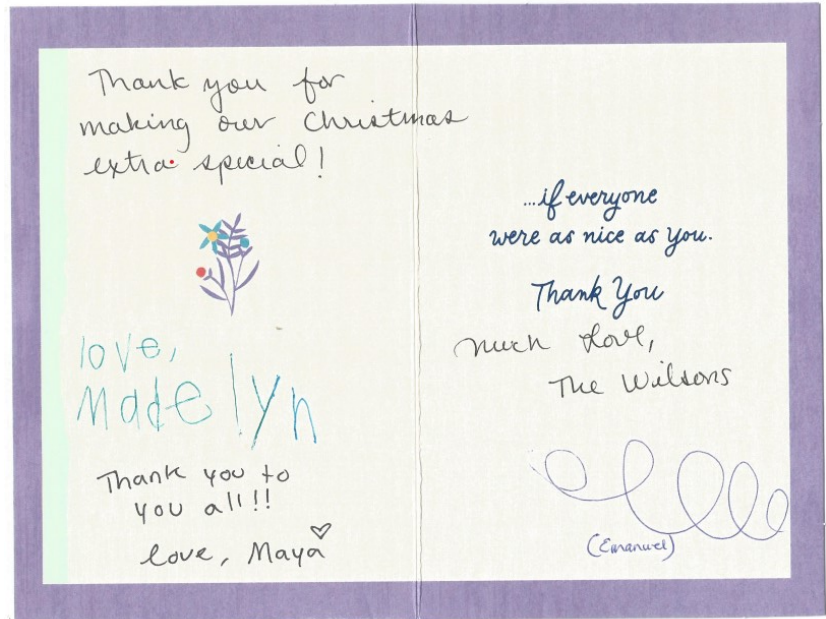 Thank you for
making our Christmas
extra special!
love,
Madelyn
Thank you to
you all!!
love, Maya
...if everyone
were as nice as you.
Thank You
Much Love,
The Wilsons
(Emanuel)